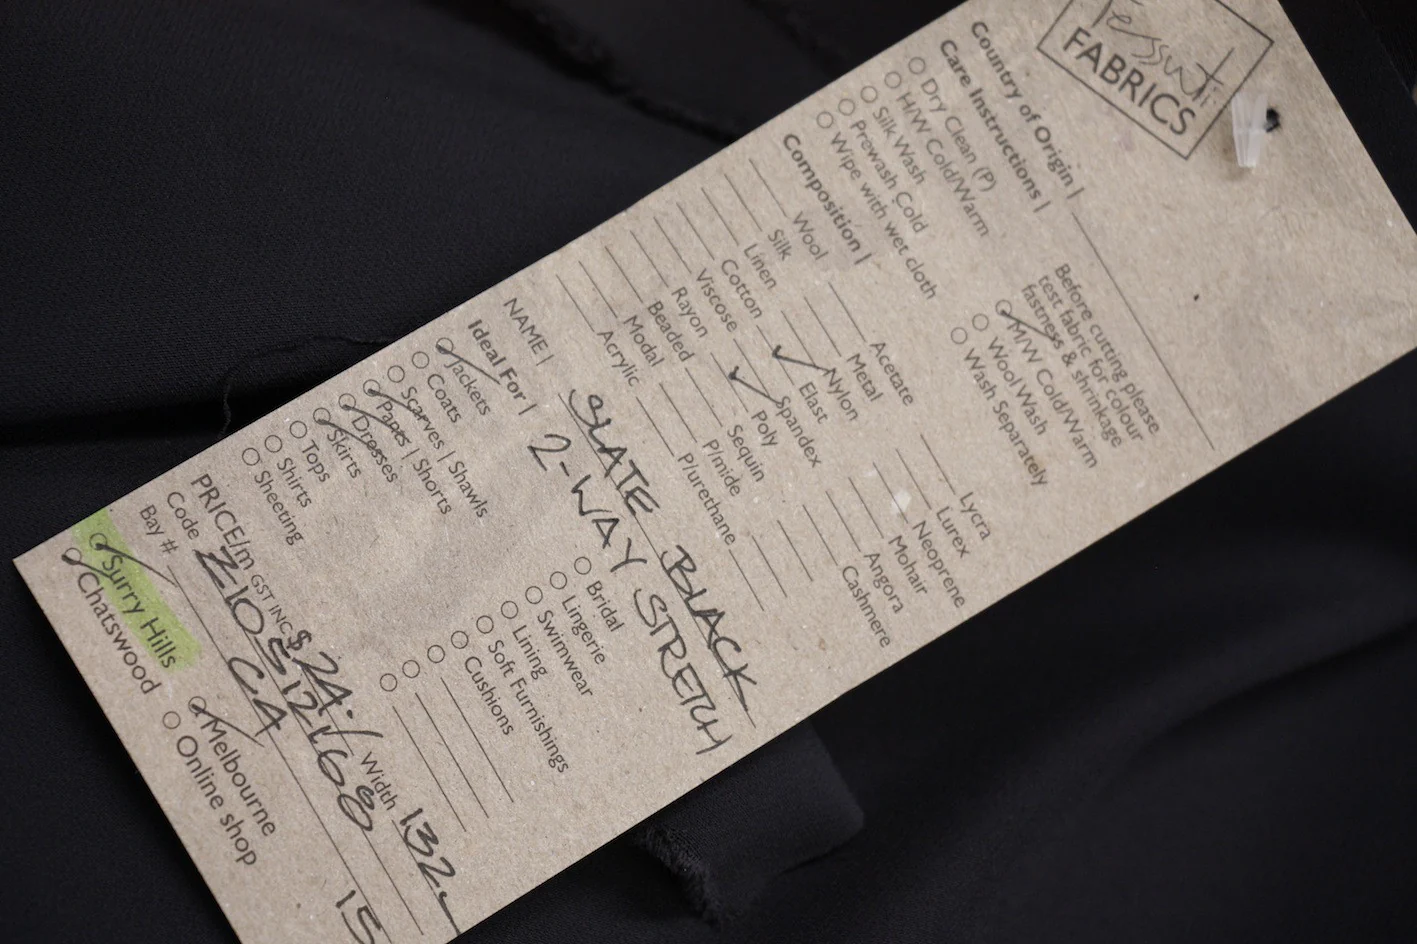 Tessuti
FABRICS
Country of Origin |
Care Instructions |
Dry Clean (P)
H/W Cold/Warm
Silk Wash
Prewash Cold
Wipe with wet cloth
Before cutting please
test fabric for colour
fastness & shrinkage
M/W Cold/Warm
Wool Wash
Wash Separately
Composition |
Wool
Silk
Linen
Cotton
Viscose
Rayon
Beaded
Modal
Acrylic
Acetate
Metal
Nylon
Elast
Spandex
Poly
Sequin
P/mide
P/urethane
Lycra
Lurex
Neoprene
Mohair
Angora
Cashmere
NAME | SLATE BLACK
2-WAY STRETCH
Ideal For |
Jackets
Coats
Scarves | Shawls
Pants | Shorts
Dresses
Skirts
Tops
Shirts
Sheeting
Bridal
Lingerie
Swimwear
Lining
Soft Furnishings
Cushions
PRICE/m GST INC $24./ Width 132
Code
Bay # CA 15
Surry Hills
Chatswood
Melbourne
Online shop